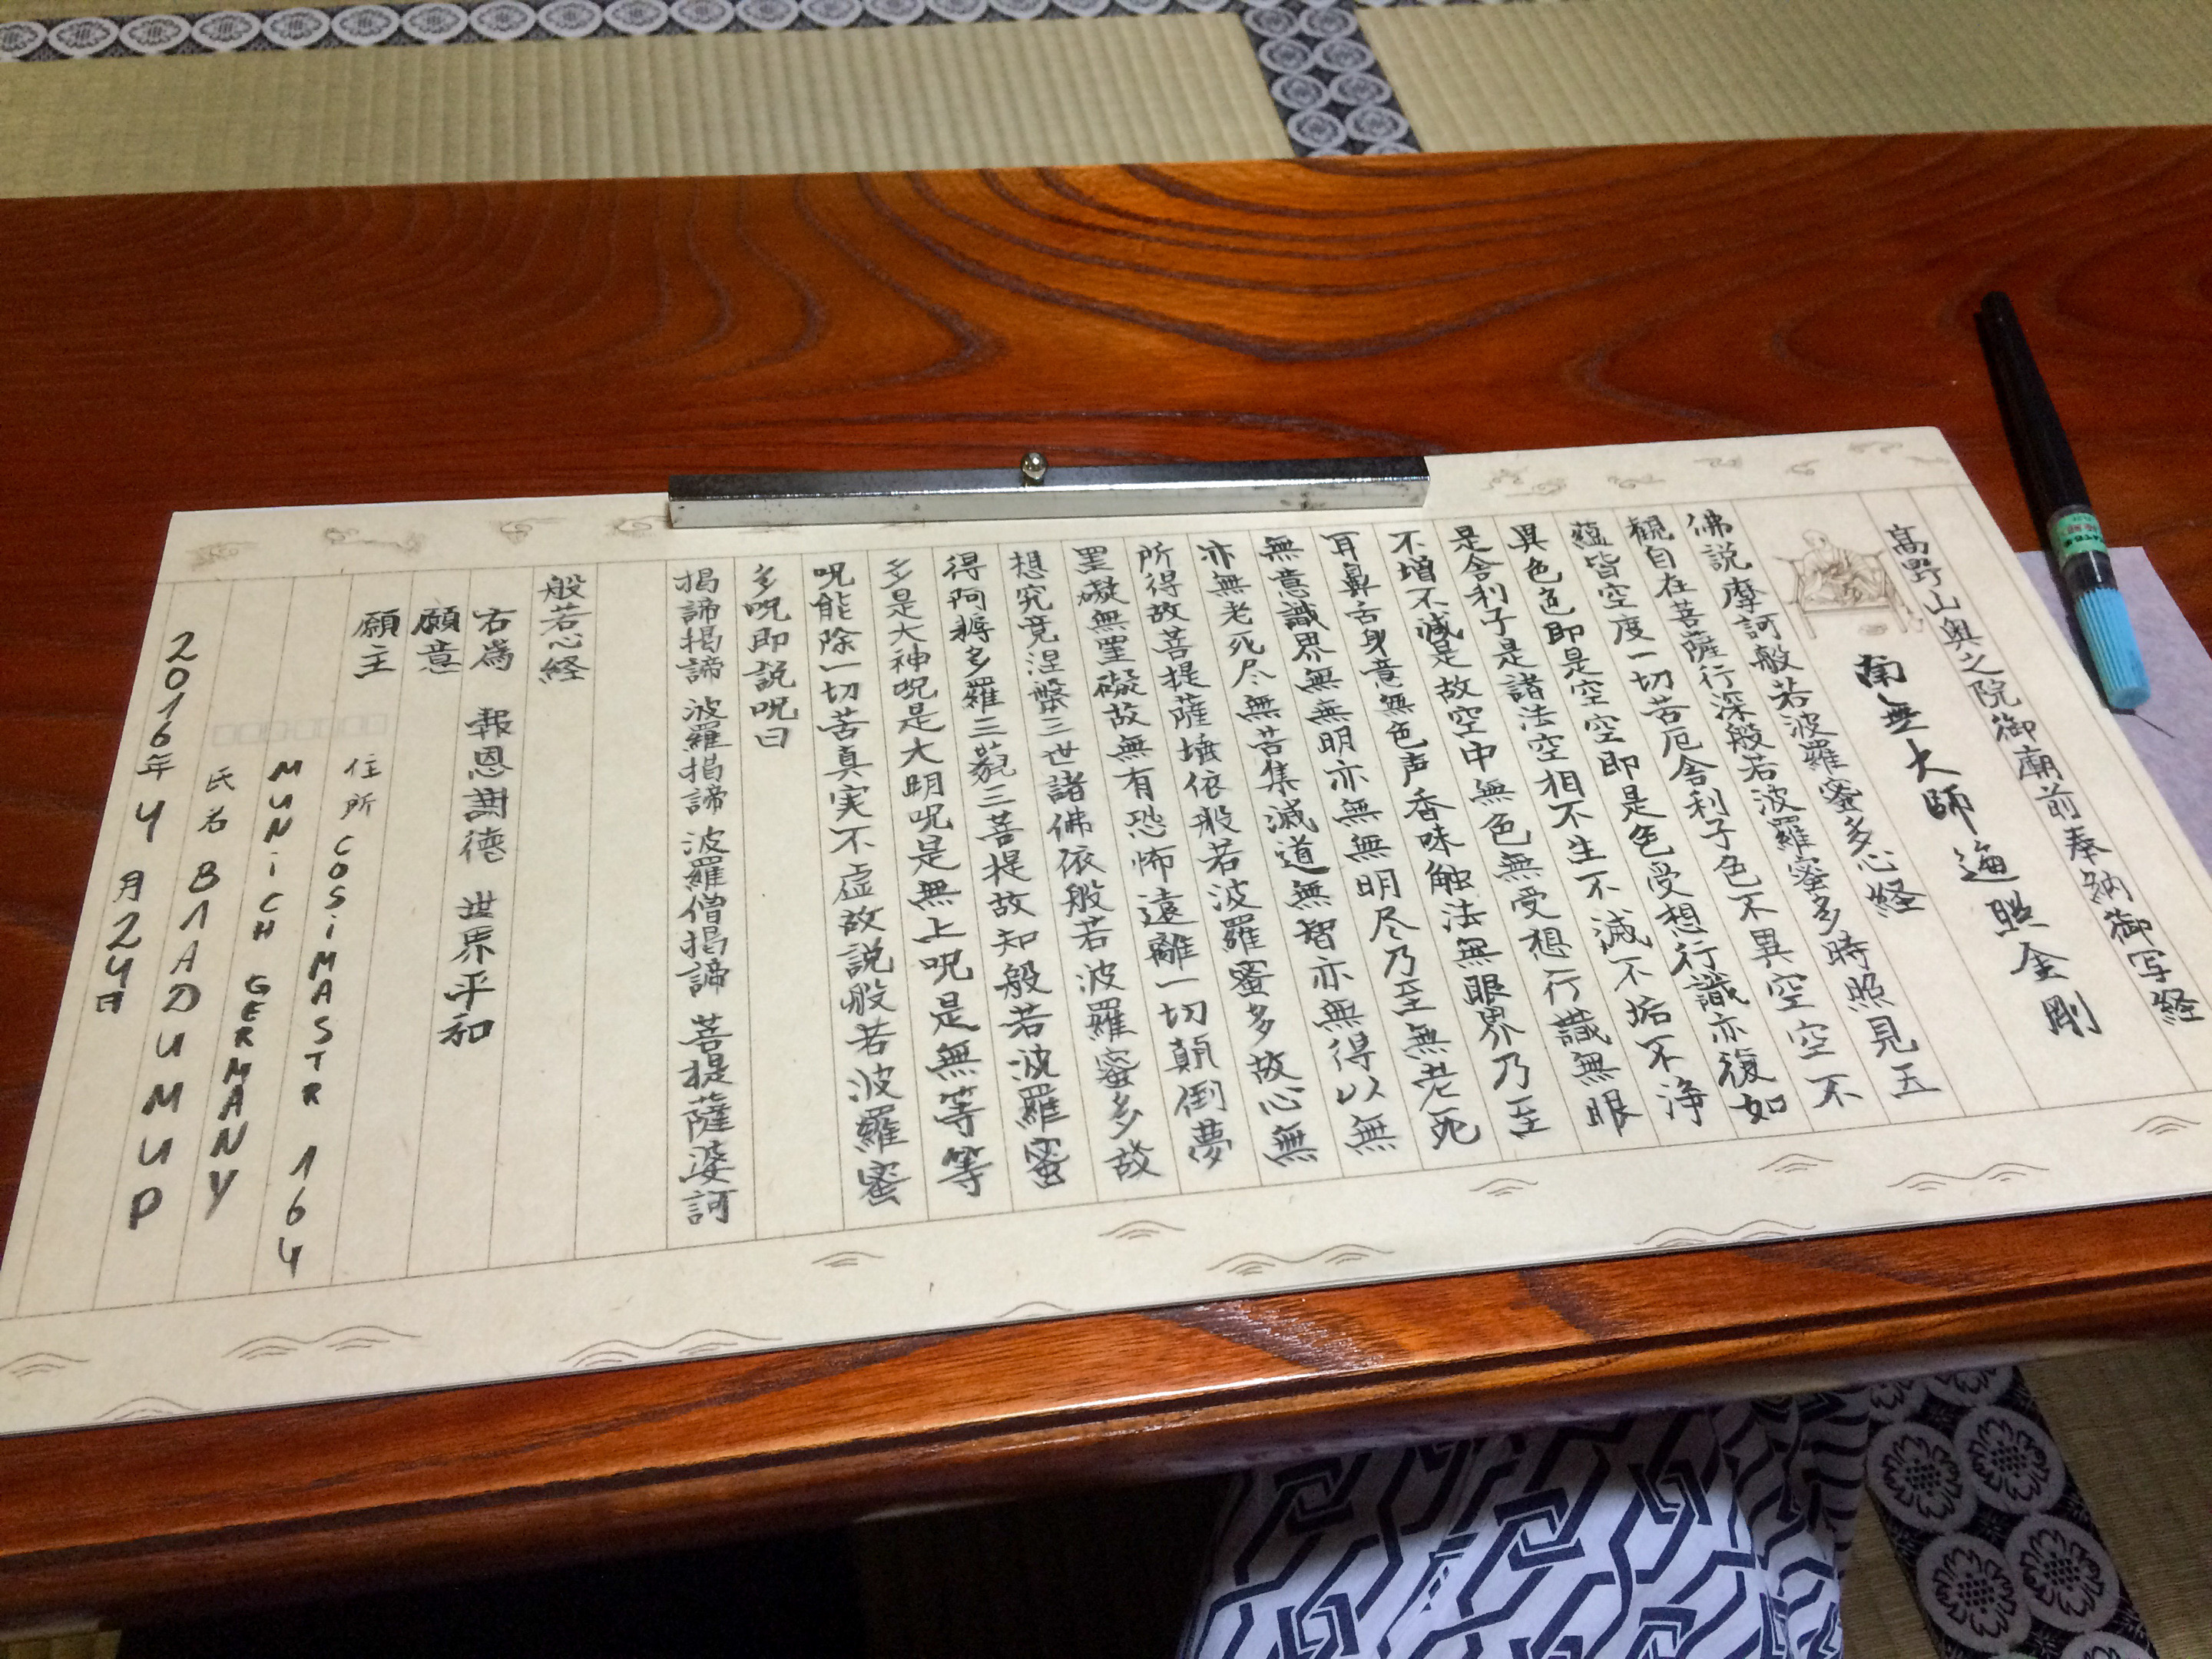 高野山奥之院御廟前奉納御写経
南無大師遍照金剛
佛説摩訶般若波羅蜜多心経
観自在菩薩行深般若波羅蜜多時照見五
蘊皆空度一切苦厄舎利子色不異空空不
異色色即是空空即是色受想行識亦復如
是舎利子是諸法空相不生不滅不垢不浄
不増不減是故空中無色無受想行識無眼
耳鼻舌身意無色声香味触法無眼界乃至
無意識界無無明亦無無明尽乃至無老死
亦無老死尽無苦集滅道無智亦無得以無
所得故菩提薩埵依般若波羅蜜多故心無
罣礙無罣礙故無有恐怖遠離一切顛倒夢
想究竟涅槃三世諸佛依般若波羅蜜多故
得阿耨多羅三藐三菩提故知般若波羅蜜
多是大神呪是大明呪是無上呪是無等等
呪能除一切苦真実不虚故説般若波羅蜜
多呪即説呪曰
掲諦掲諦 波羅掲諦 波羅僧掲諦 菩提薩婆訶
般若心経
右為 報恩謝徳 世界平和
願意
願主
住所 COSiMASTR 164
MUNiCH GERMANY
氏名 B1ADUMUP
2016年4月24日